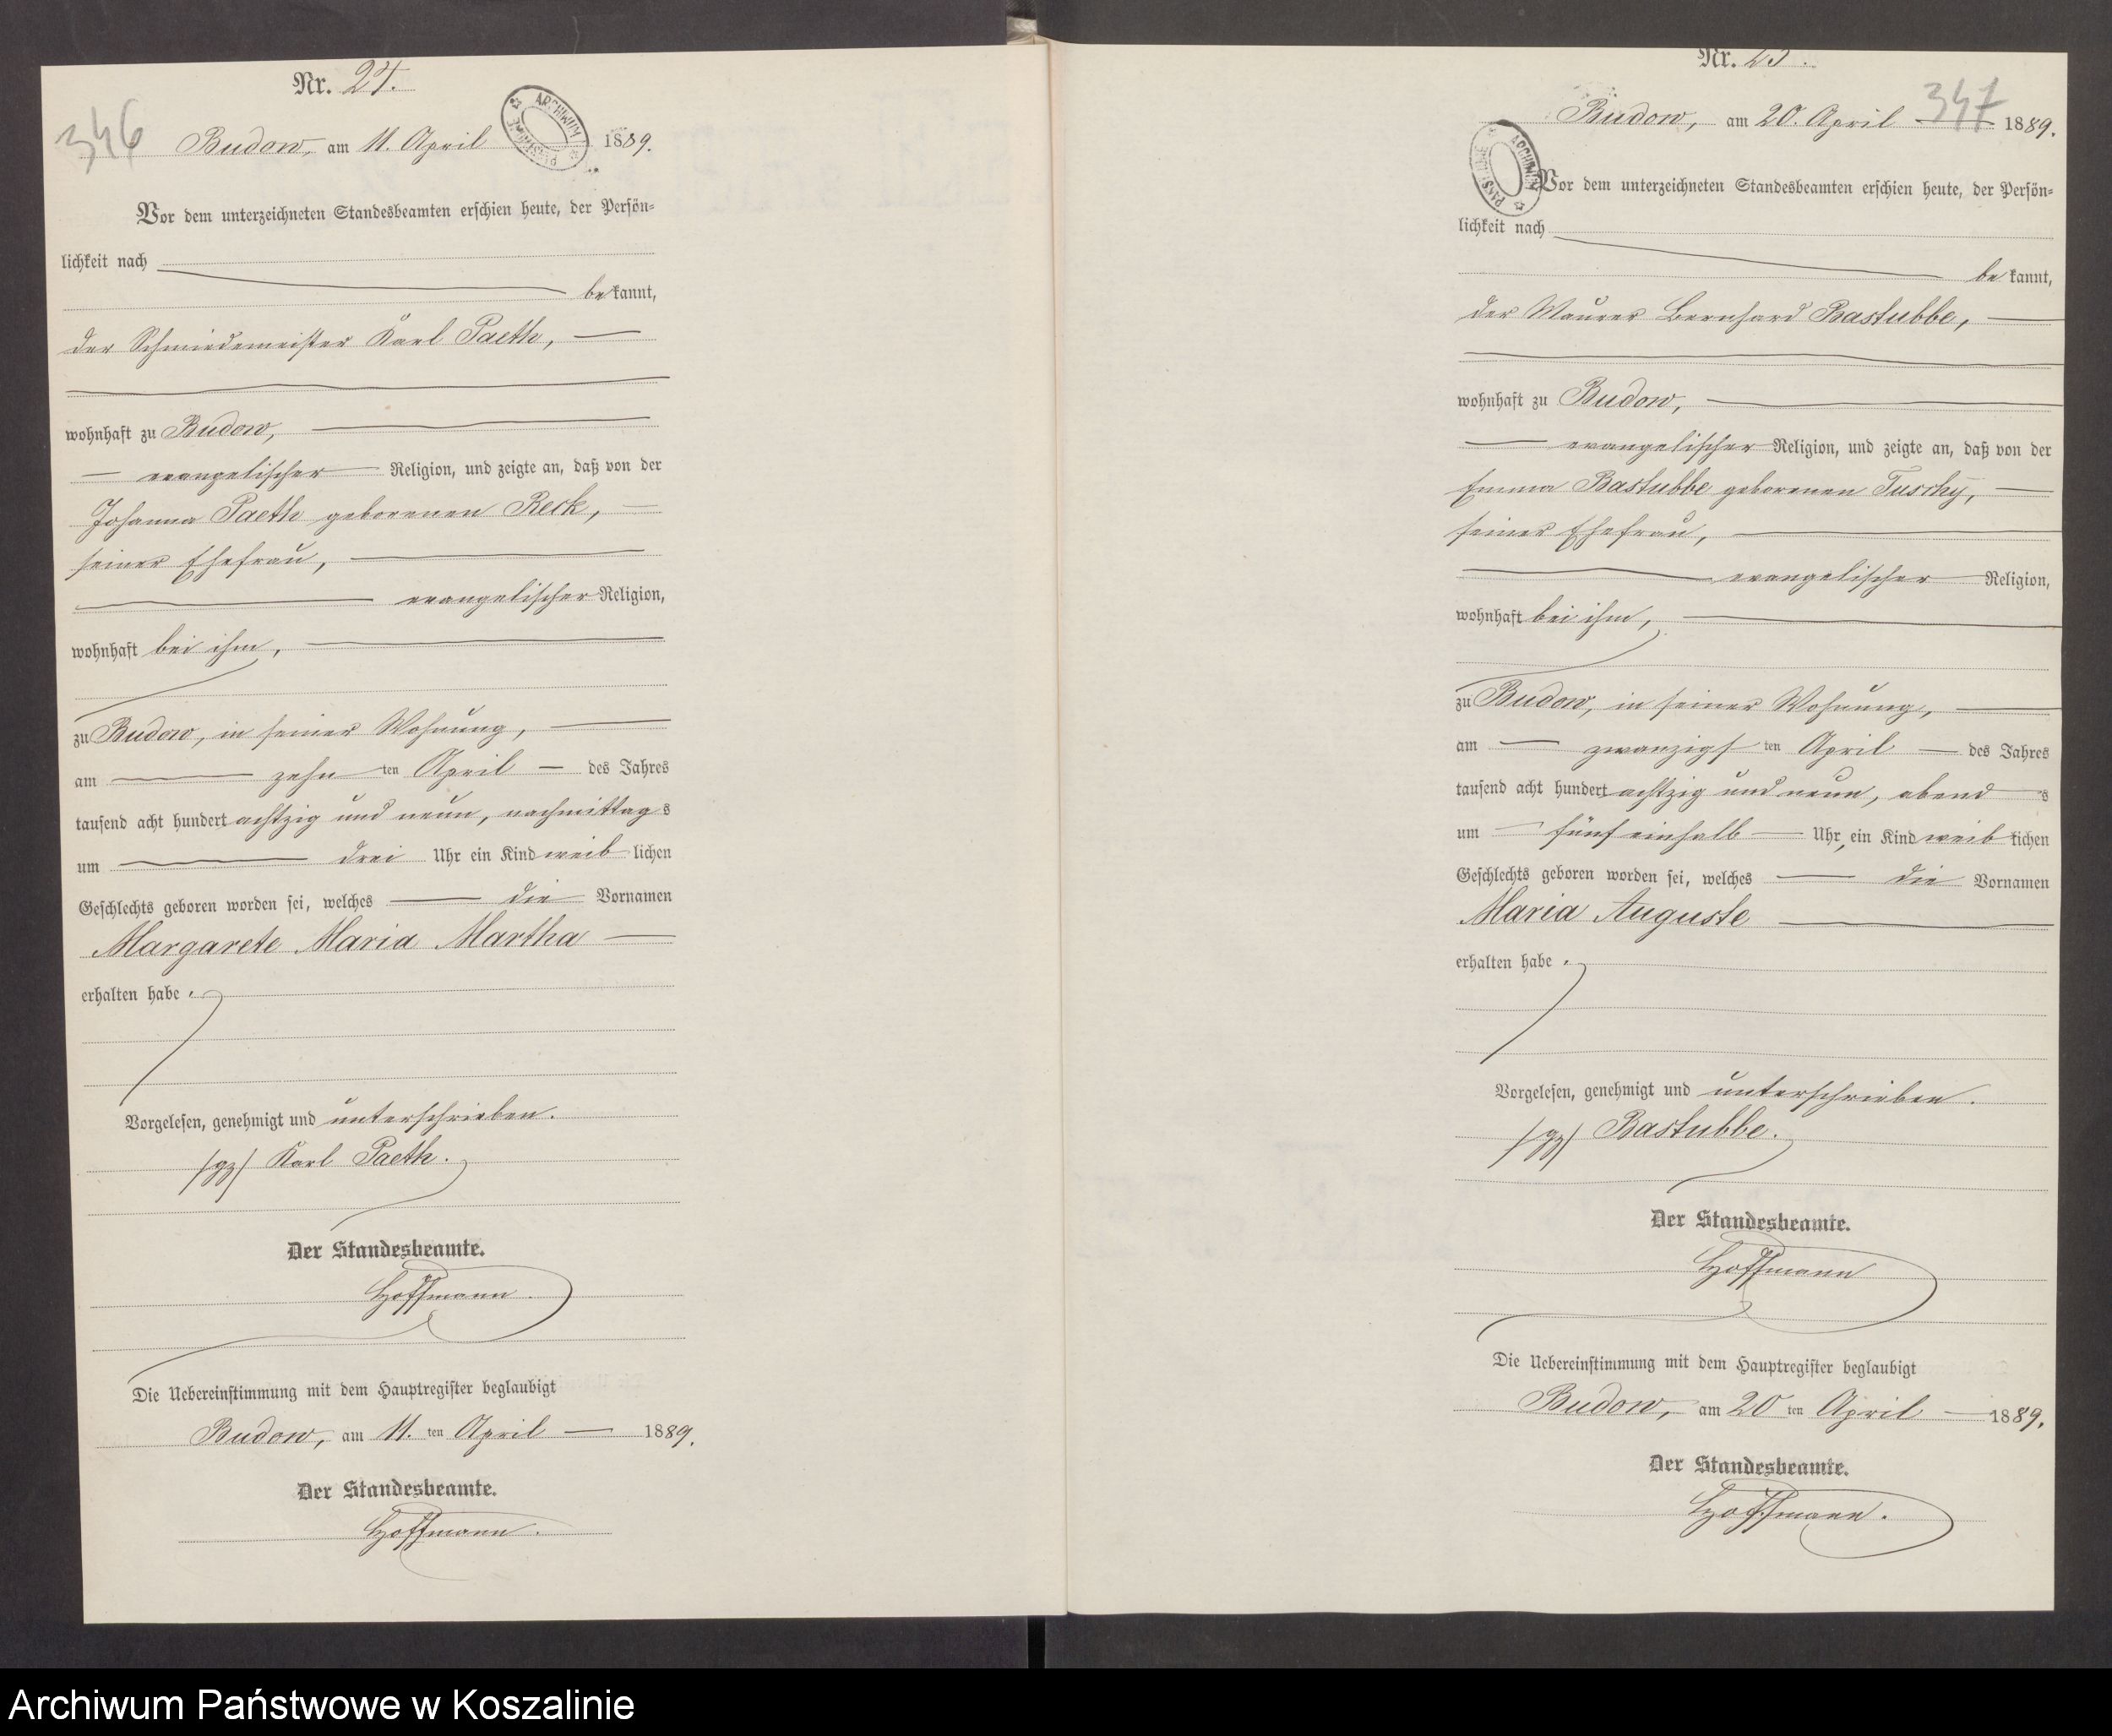 Nr. 24.
346
Budow, am 11. April 1889.
ARCHIWUM PAŃSTWOWE
Vor dem unterzeichneten Standesbeamten erschien heute, der Persön=
lichkeit nach
bekannt,
der Schmiedemeister Karl Paeth,
wohnhaft zu Budow,
evangelischer Religion, und zeigte an, daß von der
Johanna Paeth geborenen Reck,
seiner Ehefrau,
evangelischer Religion,
wohnhaft bei ihm,
zu Budow, in seiner Wohnung,
am zehnten April des Jahres
tausend acht hundert achtzig und neun, nachmittags
um drei Uhr ein Kind weiblichen
Geschlechts geboren worden sei, welches die Vornamen
Margarete Maria Martha
erhalten habe.
Vorgelesen, genehmigt und unterschrieben.
/gz/ Karl Paeth.
Der Standesbeamte.
Hoffmann.
Die Uebereinstimmung mit dem Hauptregister beglaubigt
Budow, am 11. ten April 1889.
Der Standesbeamte.
Hoffmann.
Nr. 25.
347
Budow, am 20. April 1889.
ARCHIWUM PAŃSTWOWE
Vor dem unterzeichneten Standesbeamten erschien heute, der Persön=
lichkeit nach
bekannt,
der Maurer Bernhard Bastubbe,
wohnhaft zu Budow,
evangelischer Religion, und zeigte an, daß von der
Emma Bastubbe geborenen Tuschy,
seiner Ehefrau,
evangelischer Religion,
wohnhaft bei ihm,
zu Budow, in seiner Wohnung,
am zwanzigsten April des Jahres
tausend acht hundert achtzig und neun, abends
um fünf einhalb Uhr, ein Kind weiblichen
Geschlechts geboren worden sei, welches die Vornamen
Maria Auguste
erhalten habe.
Vorgelesen, genehmigt und unterschrieben.
/gz/ Bastubbe.
Der Standesbeamte.
Hoffmann
Die Uebereinstimmung mit dem Hauptregister beglaubigt
Budow, am 20 ten April 1889.
Der Standesbeamte.
Hoffmann.
Archiwum Państwowe w Koszalinie